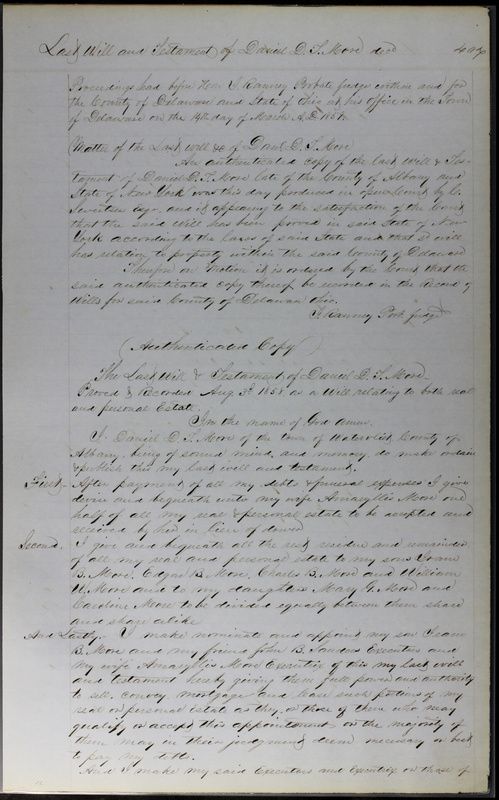 Last Will and Testament of Daniel D. T. More decd
Proceedings had before Hon T. Ranney Probate Judge within and for
the County of Delaware and State of Ohio at his office in the Town
of Delaware on the 14th day of March A.D.
Matter of the Last will &c of Danl D. T. More
An authenticated copy of the last Will & Tes-
tament of Daniel D. T. More late of the County of Albany and
State of New York was this day produced in open Court by C.
Sweetser Esqr. and it appearing to the satisfaction of the Court
that the said Will has been proved in said State of New
York according to the Laws of said State and that sd will
has relation to property within the said County of Delaware
Therefore on motion it is ordered by the Court that the
said authenticated copy thereof be recorded in the Record of
Wills for said County of Delaware Ohio.
T. Ranney Prob Judge
(Authenticated Copy)
The Last Will & Testament of Daniel D. T. More
Proved & Recorded Aug 3d 1858 as a Will relating to both real
and personal Estate
In the name of God Amen.
I Daniel D. T. More of the town of Watervliet County of
Albany, being of sound mind, and memory do make ordain
& publish this my last will and testament.
First,- After payment of all my debts & funeral expenses I give
devise and bequeath unto my wife Amaryllis More one
half of all my real & personal estate to be accepted and
received by her in lieu of dower
Second. I give and bequeath all the rest residue and remainder
of all my real and personal estate to my sons Isaac
B. More, Edgar B. More, Charles B. More and William
W. More and to my daughters Mary G. More and
Caroline More to be divided equally between them share
and share alike
And Lastly. I make nominate and appoint my son Isaac
B. More and my friend John B. Sanders Executors and
my wife Amaryllis More Executrix of this my last will
and testament hereby giving them full power and authority
to sell, convey mortgage and lease such portions of my
real or personal estate as they, or those of them who may
qualify or accept this appointment or the majority of
them may in their judgment deem necessary or best
to pay my debts.
And I make my said Executors and Executrix or those of